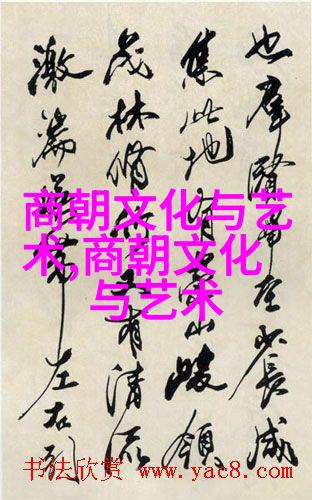 也群賢畢至少長咸
集此地有崇山峻領
茂林脩竹又有清流
激湍暎帶左右引
商朝文化与艺
术,商朝文化
与艺术
书法欣赏 www.yac8.com